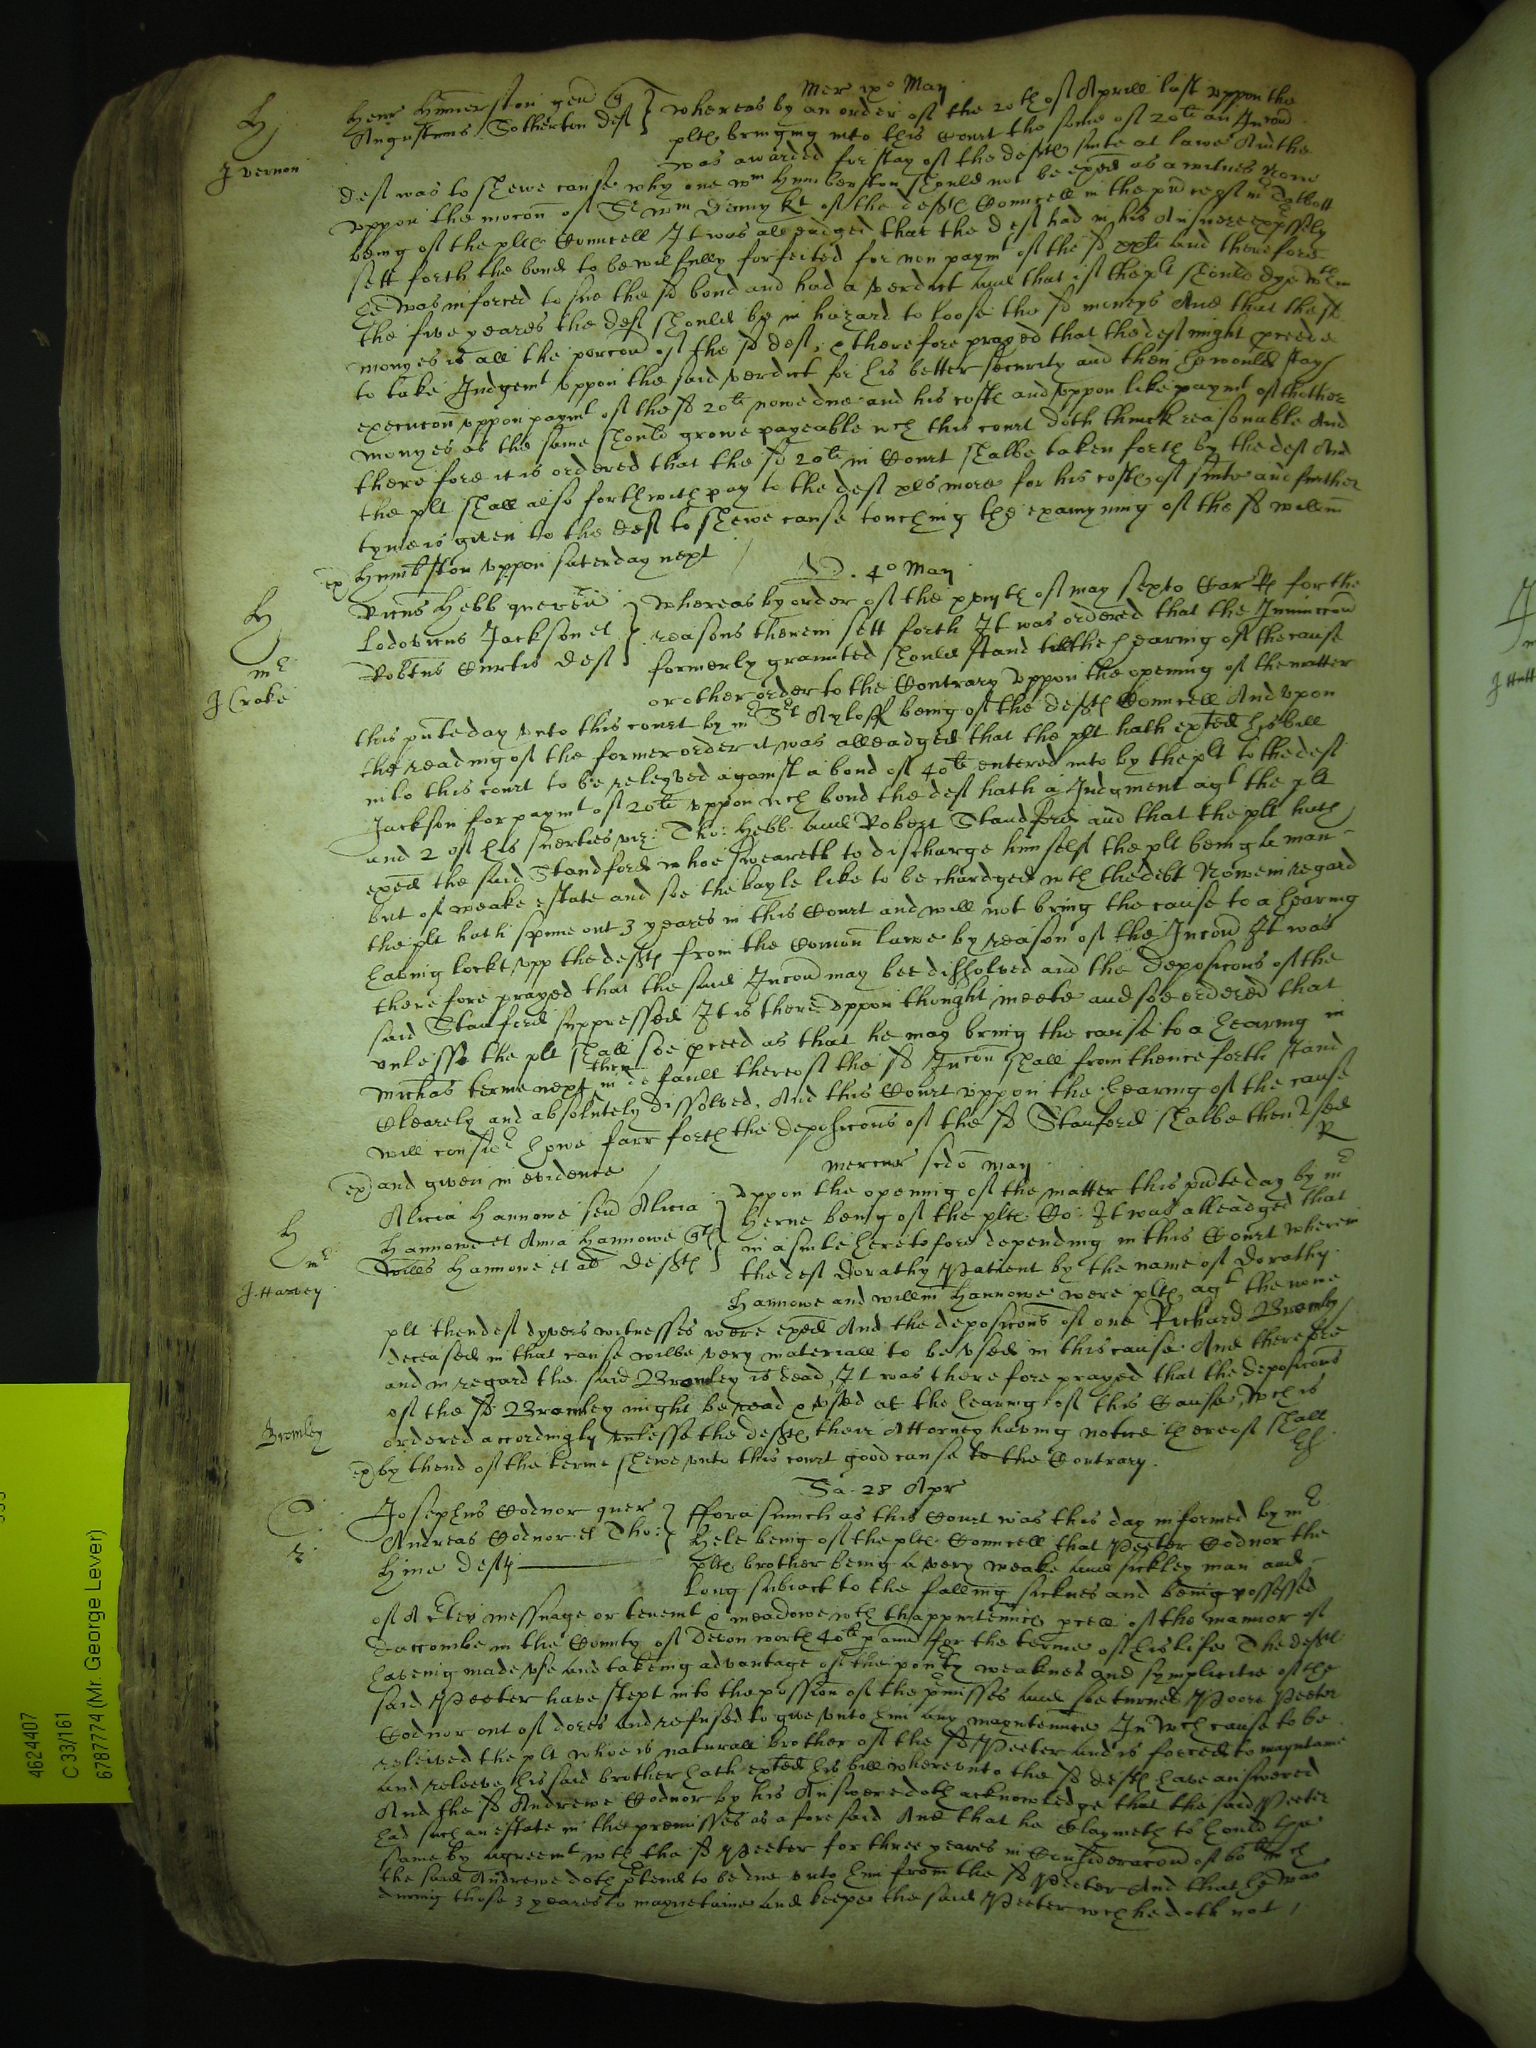 Mer ixo May
H
Augustinus Sotherton deft } whereas by an order of the 20th of Aprill last uppon the
plts bringing into this Court the some of 20li an Incon
J Vernon
was awarded for stay of the defts suite at lawe And the
deft was to shewe cause why one Wm Humberston should not be exed as a witnes Nowe
uppon the mocon of Sr Wm Denny kt of the defts Councell in the pnce of Mr Talbott
being of the plts Councell It was alleadged that the deft had in his Answere expressly
sett forth the bond to be wilfully forfeited for non paymt of the sd and therefore
he was inforced to sue the sd bond and had a verdict and that if the plt should dye wthin
the five yeares the deft should be in hazard to loose the sd moneys And that the sd
monyes is all the porcon of the sd deft, & therefore prayed that the deft might pceede
to take Judgemt uppon the said verdict for his better security and then he would stay
execucon uppon paymt of the sd 20li nowe due and his costs and uppon like paymt of thother
monyes as the same should growe payeable wch this court doth thinck reasonable And
therefore it is ordered that the sd 20li in Court shalbe taken forth by the deft And
the plt shall also forthwith pay to the deft xls more for his costs of suite and further
tyme is given to the deft to shewe cause touching the examyning of the sd Willm
ex Humbston uppon saterday next
4o May
H
Hebb quer } whereas by order of the xxiijth of may sexto Car Rs for the
Lodovicus Jackson et } reasons therein sett forth It was ordered that the Iniunccon
Robtus Curtis deft } formerly graunted should stand till the hearing of the cause
mr
J Croke
or other order to the Contrary uppon the opening of the matter
this pnte day unto this court by mr Sert Ayloff being of the defts Councell And upon
the reading of the former order it was alleadged that the plt hath exted his bill
into this court to be releyved against a bond of 40li entered into by the plt to the deft
Jackson for paymt of 20li uppon wch bond the deft hath a Judgment agt the plt
and 2 of his suerties viz: Tho: Hebb and Robert Standford and that the plt hath
exed the said Standford whoe sweareth to discharge himself the plt being a man
but of weake estate and soe the bayle like to be chardged wth the debt Nowe in regard
the plt hath spunne out 3 yeares in this Court and will not bring the cause to a hearing
having lockt upp the defts from the Comon lawe by reason of the Incon It was
therefore prayed that the said Incon may bee dissolved and the deposicons of the
said Stanford suppressed It is thereuppon thought meete and soe ordered that
unlesse the plt shall soe pceed as that he may bring the cause to a hearing in
Michas terme next then in defaull thereof the sd Incon shall from thenceforth stand
clearely and absolutely dissolved. And this Court uppon the hearing of the cause
will consider howe farr forth the deposicons of the sd Stanford shalbe then used
R
ex and given in evidence
mercur scdo may
H
Alicia Hannowe sen Alicia } Uppon the opening of the matter this pnte day by mr
Hannowe et Anna Hannowe qts } Herne being of the plts Co: It was alleadged that
mr
Willus Hannowe et al defts } in a suite heretofore depending in this Court wherein
J. Harvey
the deft Dorathy Patient by the name of Dorathy
Hannowe and willm Hannowe were plts agt the nowe
plt then deft dyvers witnesses were exed And the deposicons of one Richard Bromley
deceased in that cause wilbe very materiall to be used in this cause And therefore
and in regard the said Bromley is dead, It was therefore prayed that the deposicons
of the sd Bromley might be read & used at the hearing of this Cause, Wch is
Bromley
ordered accordingly unlesse the defts their Attorney having notice thereof shall
ex by thend of the terme shewe unto this court good cause to the Contrary.
Sa. 28 Apr
C:
Josephus Codnor quer } Fforasmuch as this Court was this day informed by mr
Andreas Codnor et Tho: } Hele being of the plts Councell that Peeter Codnor the
r.
Hine defts plts brother being a very weake and sickley man and
Long subiect to the falling sicknes and being possessed
of A Cten messuage or tenemt & meadowe wth thappurtennces pcell of the mannor of
Daccombe in the County of Devon worth 40li p ann for the terme of his life The defts
haveing made use and takeing advantage of the poverty weaknes and symplicitie of the
said Peeter have stept into the possion of the pmisses and soe turned Poore Peeter
Codnor out of dores and refused to give unto him any mayntennce In wch cause to be
releived the plt whoe is naturall brother of the sd Peeter and is forced to mayntaine
and releeve his said brother hath exted his bill whereunto the sd defts have answered
And the sd Andrewe Codnor by his Answere doth acknowledge that the said Peeter
had such an estate in the premisses as aforesaid And that he Claymeth to hould the
same by agreemt wth the sd Peeter for three yeares in Consideracon of 60li wch
the said Andrewe doth ptend to be due unto him from the sd Peeter And that he was
during those 3 yeares to mayntaine and keepe the said Peeter wch he doth not
4624407
C 33/161
6787774 (Mr. George Lever)